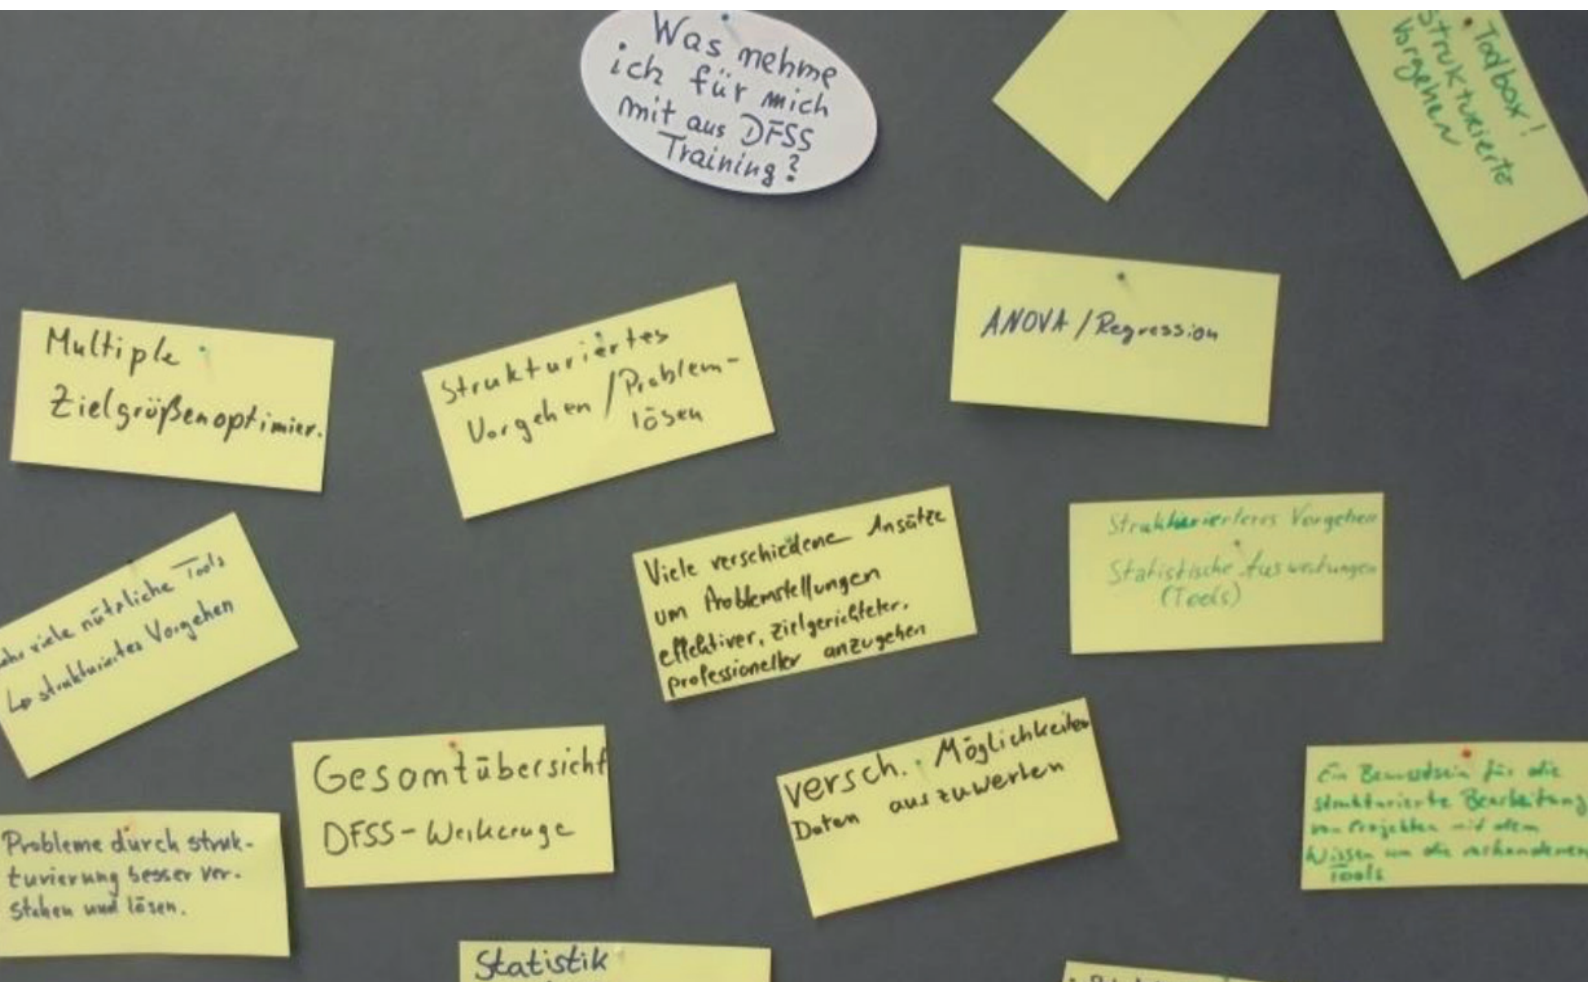 Was nehme
ich für mich
mit aus DFSS
Training?
• Toolbox!
Strukturierte
Vorgehen
Multiple
Zielgrößenoptimier.
Strukturiertes
Vorgehen / Problem-
lösen
ANOVA / Regression
viele nützliche Tools
↳ strukturiertes Vorgehen
Viele verschiedene Ansätze
um Problemstellungen
effektiver, zielgerichteter,
professioneller anzugehen
Strukturierteres Vorgehen
Statistische Auswertungen
(Tools)
Gesamtübersicht
DFSS-Werkzeuge
versch. Möglichkeiten
Daten auszuwerten
Ein Bewusstsein für die
strukturierte Bearbeitung
von Projekten mit dem
Wissen um die vorhandenen
Tools
Probleme durch struk-
turierung besser ver-
stehen und lösen.
Statistik